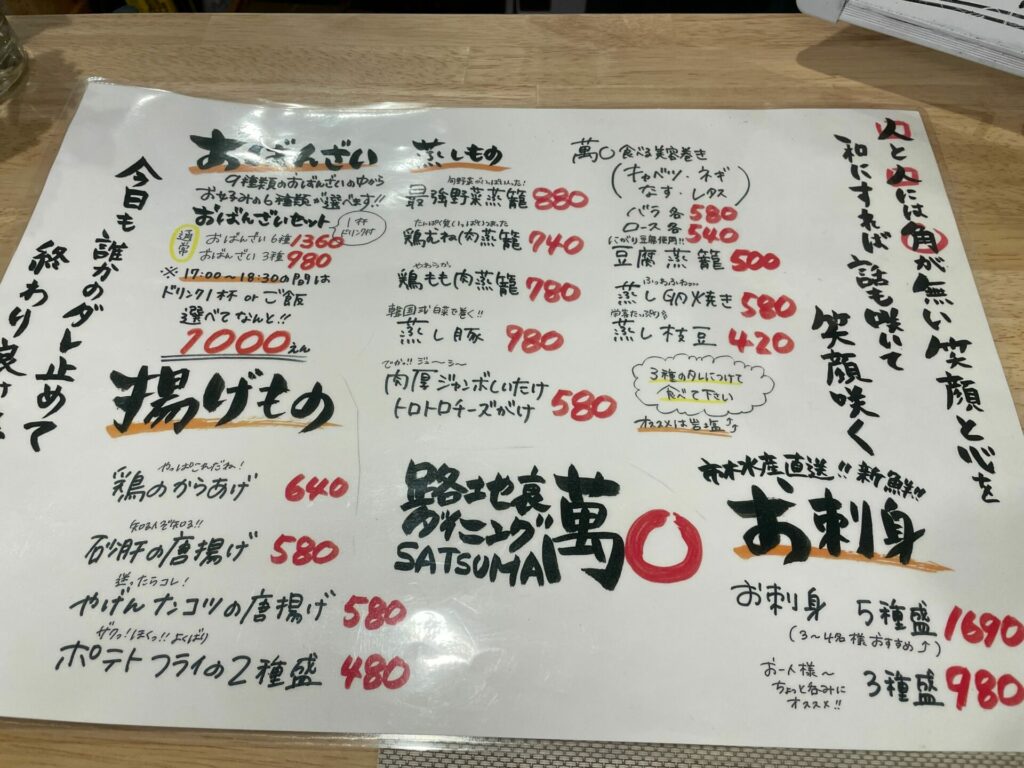 人と人には角が無い笑顔と心を
和にすれば話も咲いて
笑顔咲く
おばんざい
9種類のおばんざいの中から
お好みの6種類が選べます!!
おばんざいセット
1杯
ドリンク付
通常
おばんざい6種 1360
おばんざい3種 980
※17:00〜18:30のPayは
ドリンク1杯 or ご飯
選べてなんと!!
1000えん
蒸しもの
旬野菜がいっぱい入った!
最強野菜蒸籠 880
たんぱく質いっぱいつまった
鶏むね肉蒸籠 740
やわらか
鶏もも肉蒸籠 780
韓国式白菜で巻く!!
蒸し豚 980
でかっ!!ジューシー
肉厚ジャンボしいたけ
トロトロチーズがけ 580
萬〇 食べる美容巻き
(キャベツ・ネギ
なす・レタス)
バラ 各580
ロース 各540
にがり豆腐使用!!
豆腐蒸籠 500
ふわふわ
蒸し卵焼き 580
栄養たっぷり
蒸し枝豆 420
3種のタレにつけて
食べて下さい
オススメは岩塩
今日も誰かのダレ止めて
終わり良け
揚げもの
やっぱこれだね!
鶏のからあげ 640
知る人ぞ知る!!
砂肝の唐揚げ 580
迷ったらコレ!
やげんナンコツの唐揚げ 580
ザクっ!ほくっ!!よくばり
ポテトフライの2種盛 480
路地裏
ダイニング
SATSUMA
萬〇
水産直送!!新鮮!!
お刺身
お刺身 5種盛 1690
(3〜4名様おすすめ)
お一人様〜
ちょっと呑みに
オススメ!!
3種盛 980